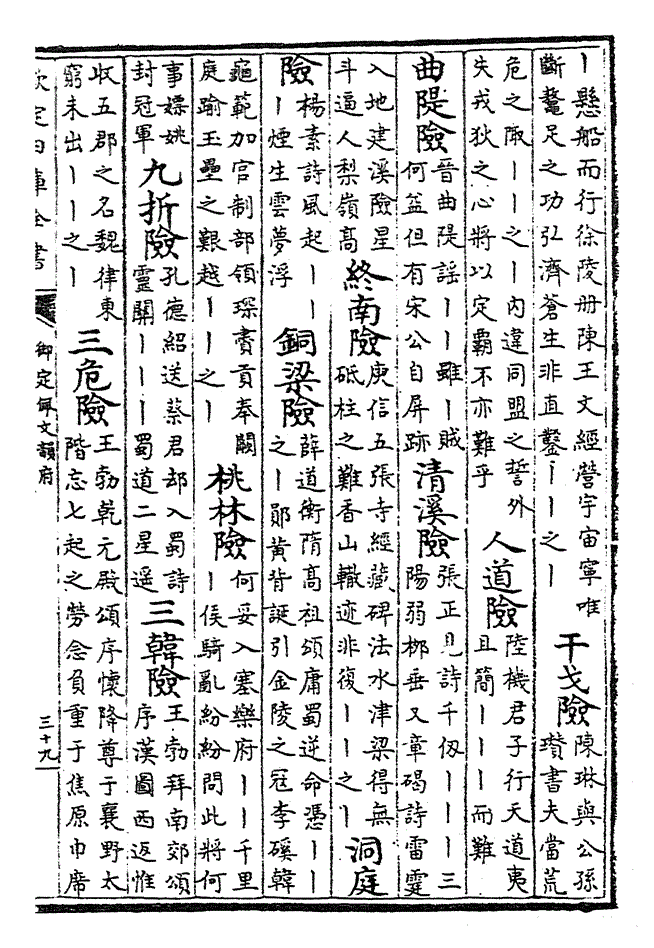 丨懸船而行徐陵册陳王文經營宇宙寧唯
斷鼇足之功弘濟蒼生非直鑿丨丨之丨
干戈險
陳琳與公孫
瓚書夫當荒
危之陬丨丨之丨内違同盟之誓外
失戎狄之心將以定霸不亦難乎
人道險
陸機君子行天道夷
且簡丨丨丨而難
曲隄險
晉曲隄謡丨丨雖丨賊
何益但有宋公自屏跡
清溪險
張正見詩千仭丨丨丨三
陽弱柳垂又章碣詩雷霆
入地建溪險星
斗逼人梨嶺高
終南險
庾信五張寺經藏碑法水津梁得無
砥柱之難香山轍迹非復丨丨之丨
洞庭
險
楊素詩風起丨丨
丨煙生雲夢浮
銅梁險
薛道衡隋高祖頌庸蜀逆命憑丨丨
之丨鄖黄背誕引金陵之冦李磎韓
龜範加官制部領琛賮貢奉闕
庭踰玉壘之艱越丨丨之丨
桃林險
何妥入塞樂府丨丨千里
丨侯騎亂紛紛問此將何
事嫖姚
封冠軍
九折險
孔德紹送蔡君却入蜀詩
靈關丨丨丨蜀道二星遥
三韓險
王勃拜南郊頌
序漢圖西返惟
收五郡之名魏律東
窮未出丨丨之丨
三危險
王勃乾元殿頌序懷降尊于襄野太
階忘七起之勞念負重于焦原巾席
欽定四庫全書
御定佩文韻府
三十九